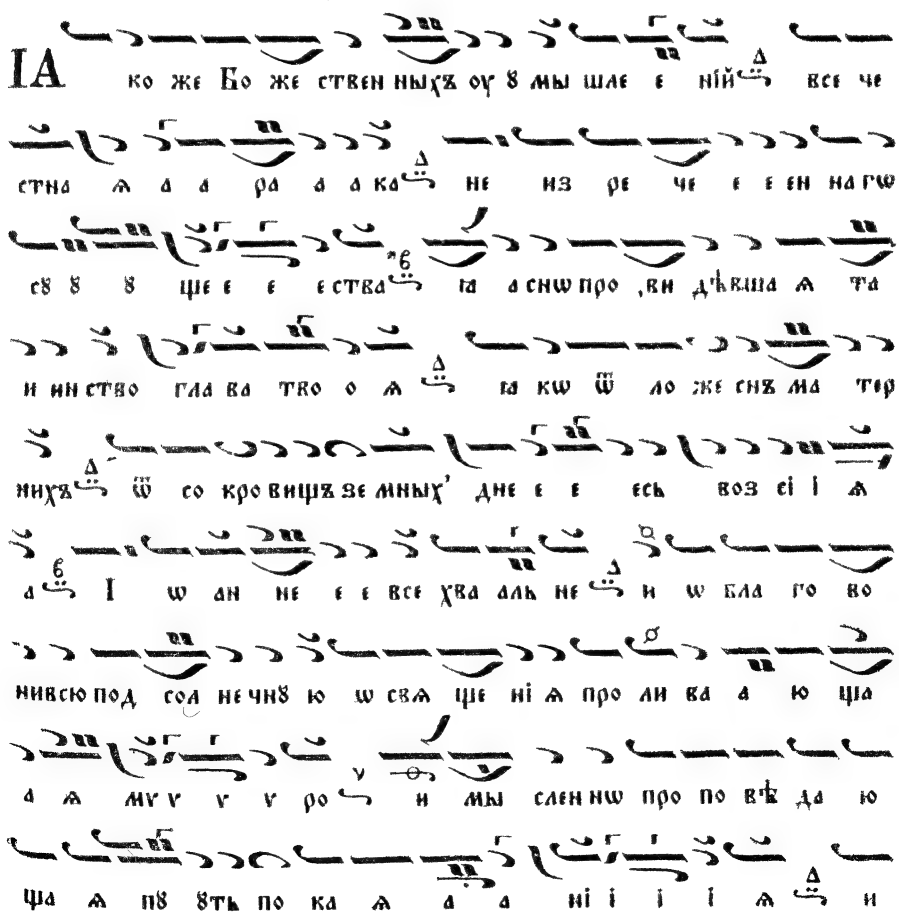 ІА ко же Бо же ствен ныхъ оу ꙋ мы шле е нїй Д все че
стна ѧ а а ра а а ка Д не из ре че е е ен на гѡ
сꙋ ꙋ ꙋ ще е е е ства в ꙗ а снѡ про ви дѣвша ѧ та
и ин ство гла ва тво о ѧ Д ꙗ кѡ ѿ ло же снъ ма тер
нихъ Д ѿ со кро вищъ зе мных' дне е е есь воз сі і ѧ
а в І ѡ ан не е е все хва аль не Д и ѡ бла го во
нив сю под сол не чнꙋ ю ѡ свѧ ще ні ѧ про ли ва а ю ща
а ѧ мѵ ѵ ѵ ѵ ро ѵ и мы слен нѡ про по вѣ да ю
ща ѧ пꙋ ꙋть по ка ѧ а а ні і і і ѧ Д и